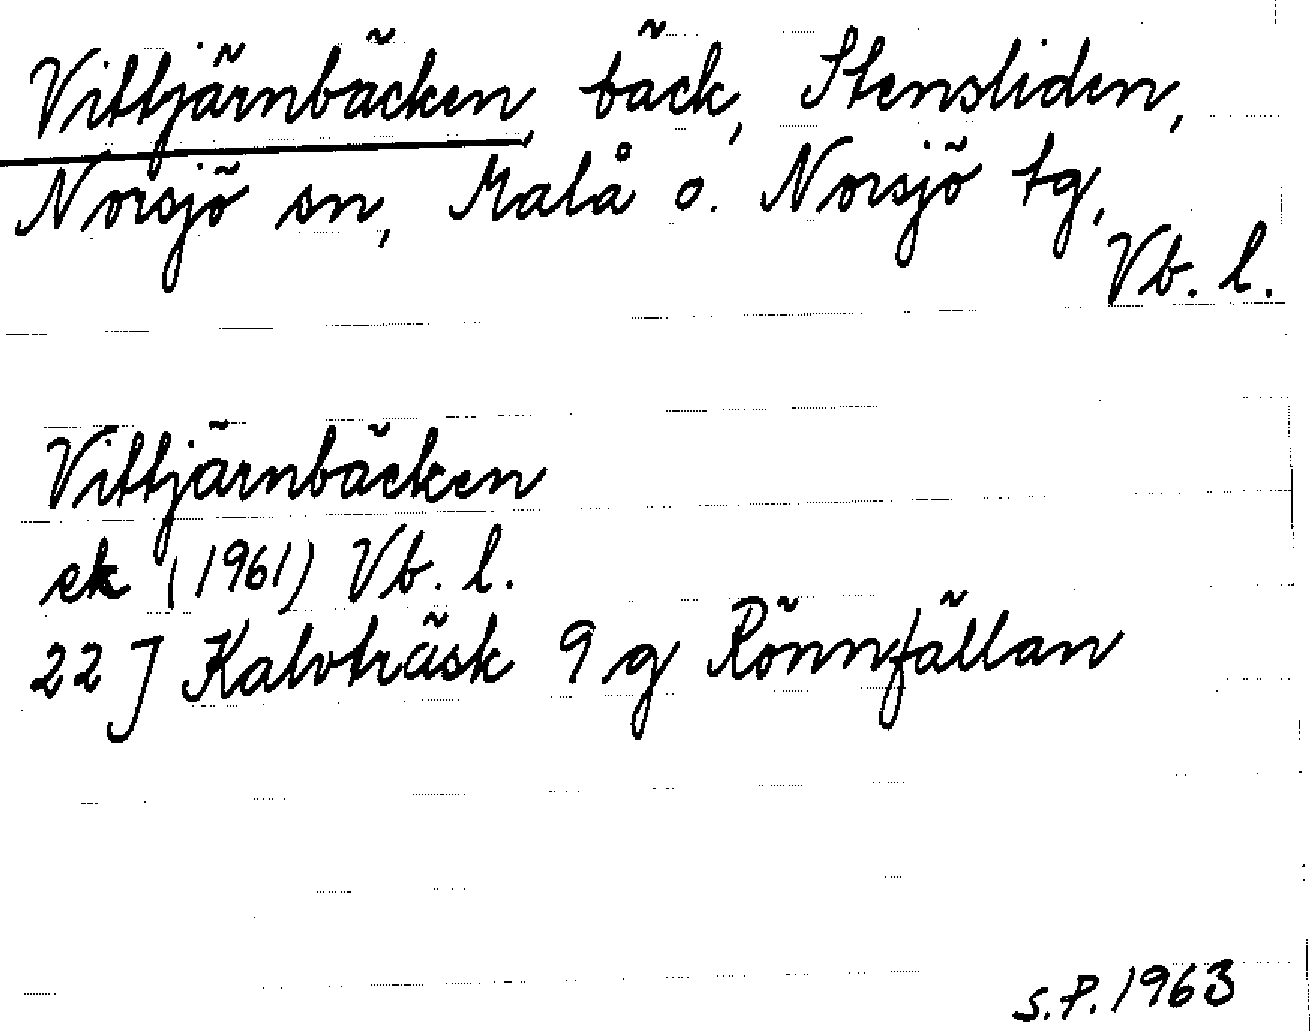 Vittjärnbäcken, bäck, Stensliden,
Norsjö sn, Malå o. Norsjö tg,
Vb. l.
Vittjärnbäcken
ek (1961) Vb. l.
22 J Kalvträsk 9 g Rönnfällan
S.P. 1963